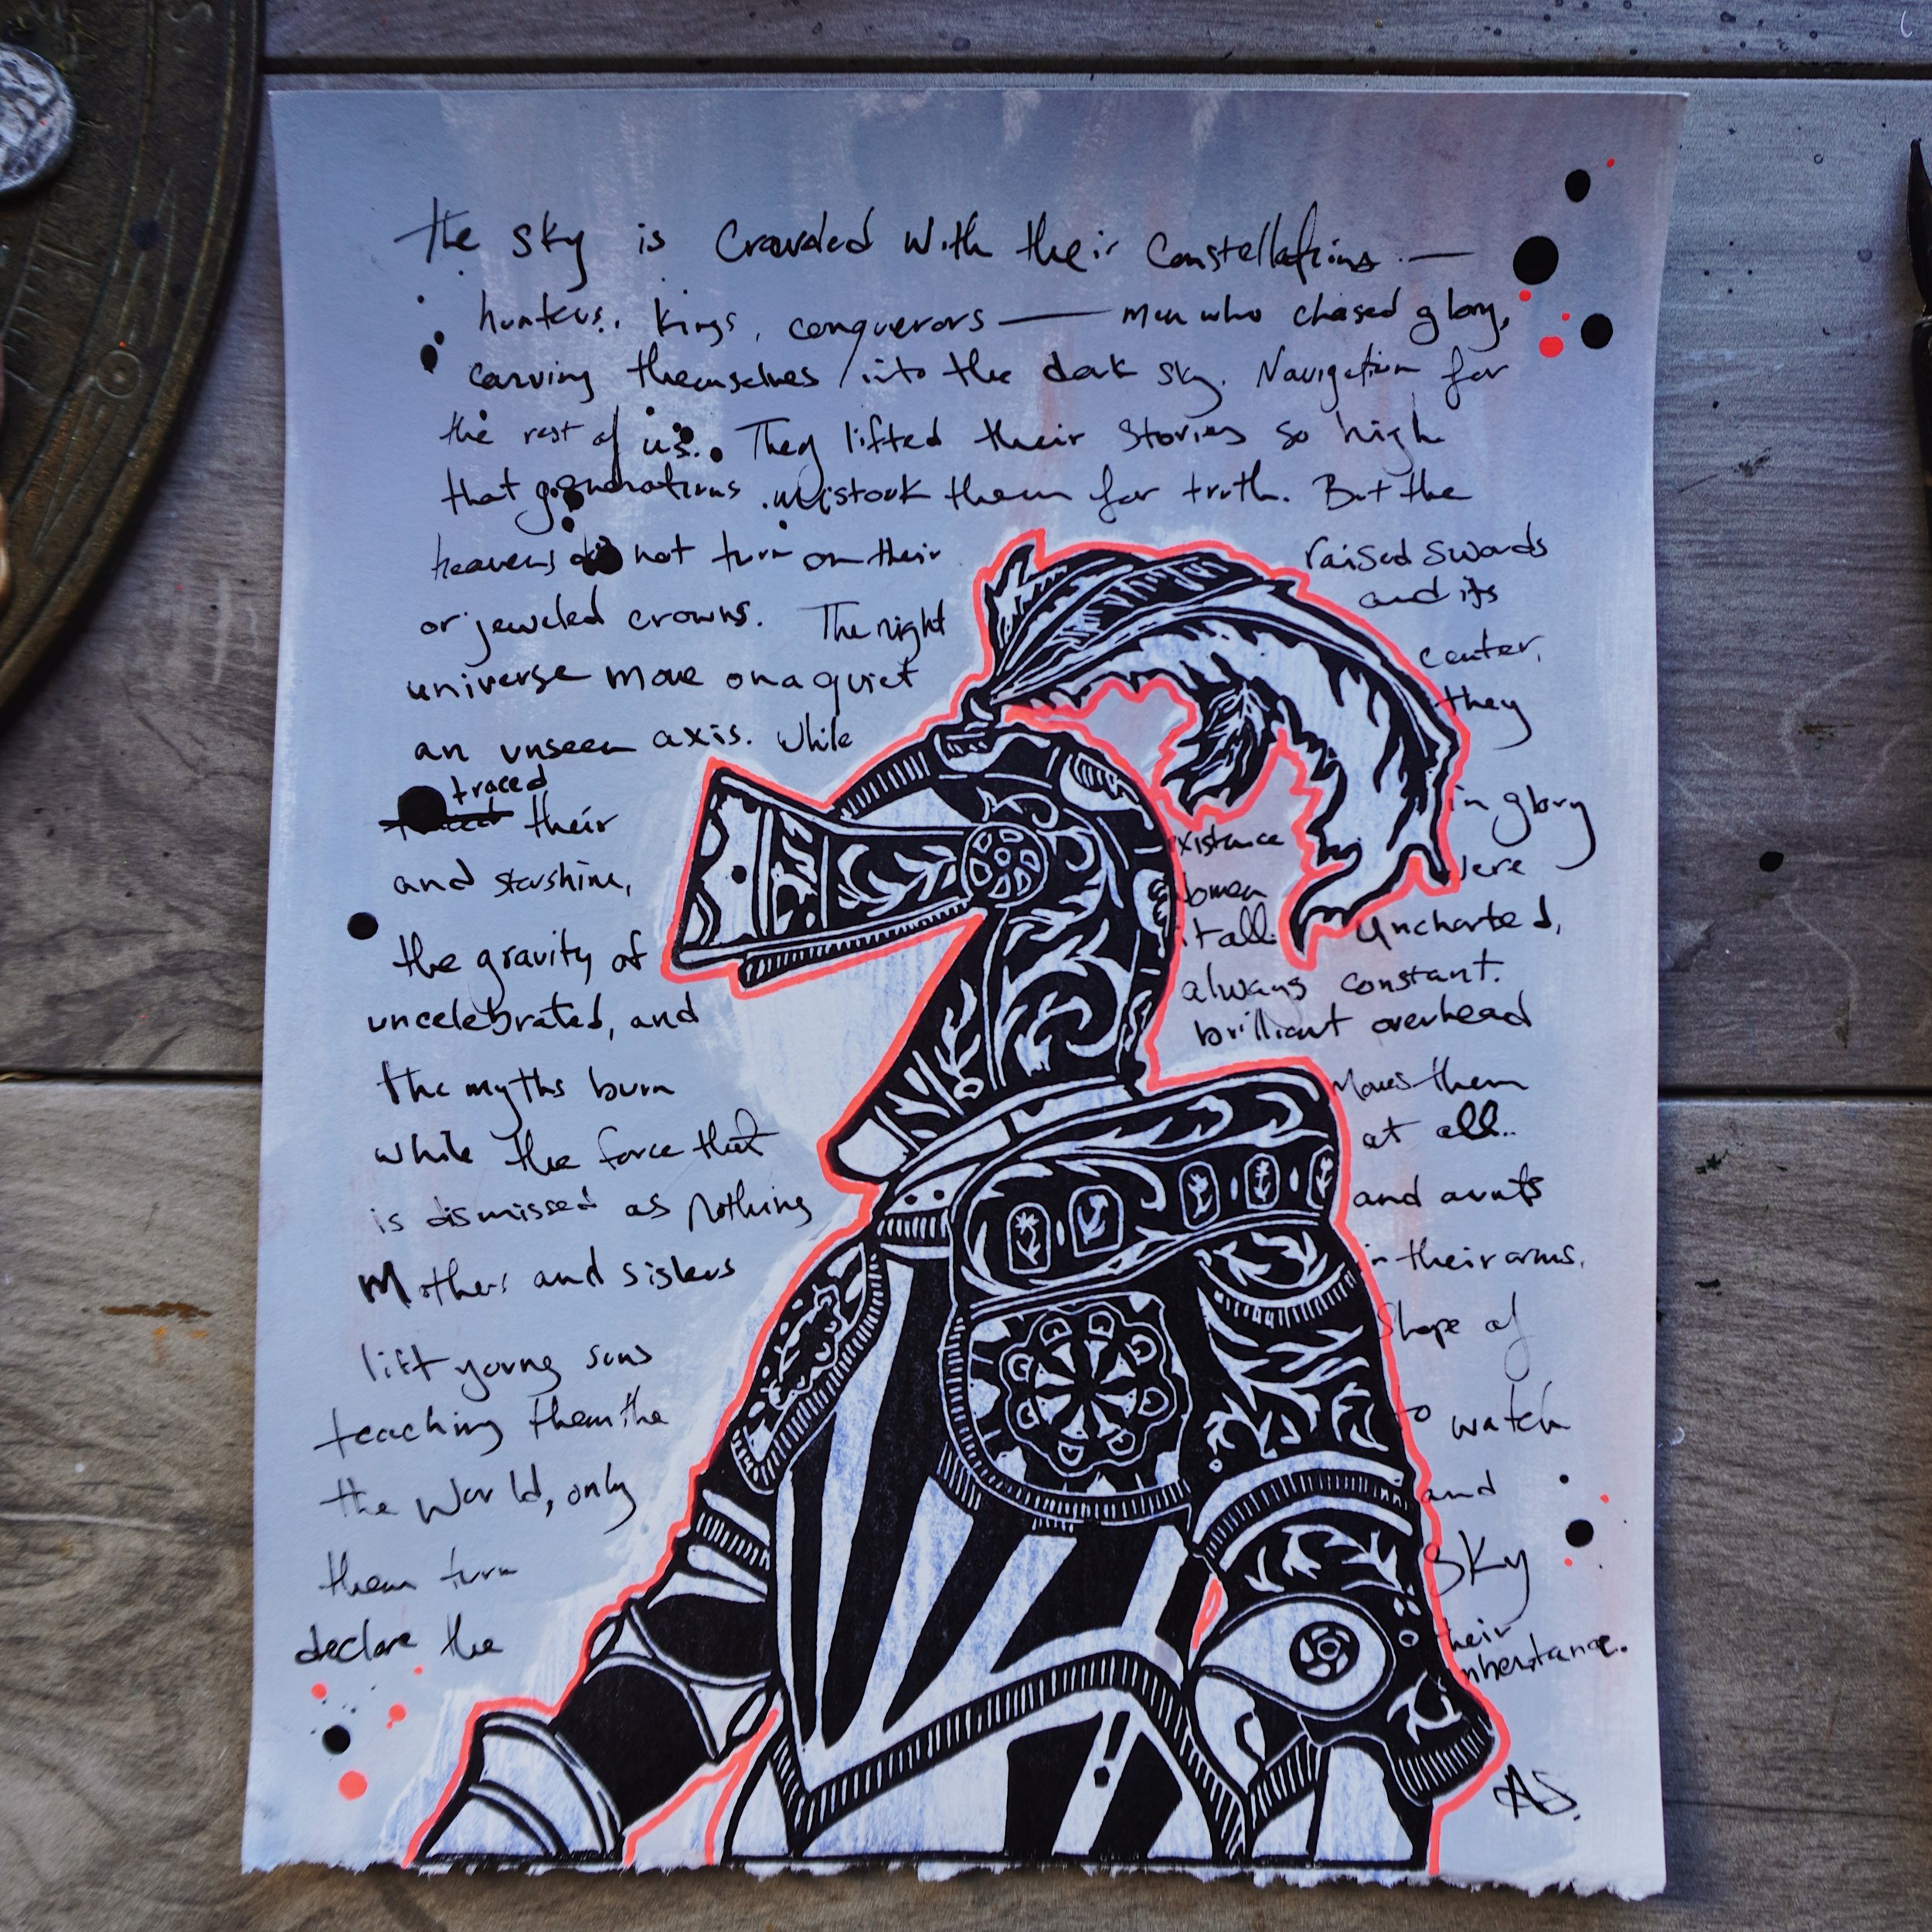 the sky is crowded with their constellations —
hunters, kings, conquerors — men who chased glory,
carving themselves into the dark sky. Navigation for
the rest of us. They lifted their stories so high
that generations mistook them for truth. But the
heavens do not turn on their raised swords
or jeweled crowns. The night and its
universe move on a quiet center,
an unseen axis. While they
traced their in glory
and starshine,
the gravity of women
uncelebrated, and it all. Uncharted,
always constant.
the myths burn brilliant overhead
while the force that moves them
is dismissed as nothing at all..
Mothers and sisters and aunts
lift young sons in their arms.
teaching them the shape of
the world, only to watch
them turn and
declare the sky
their
inheritance.
AS.